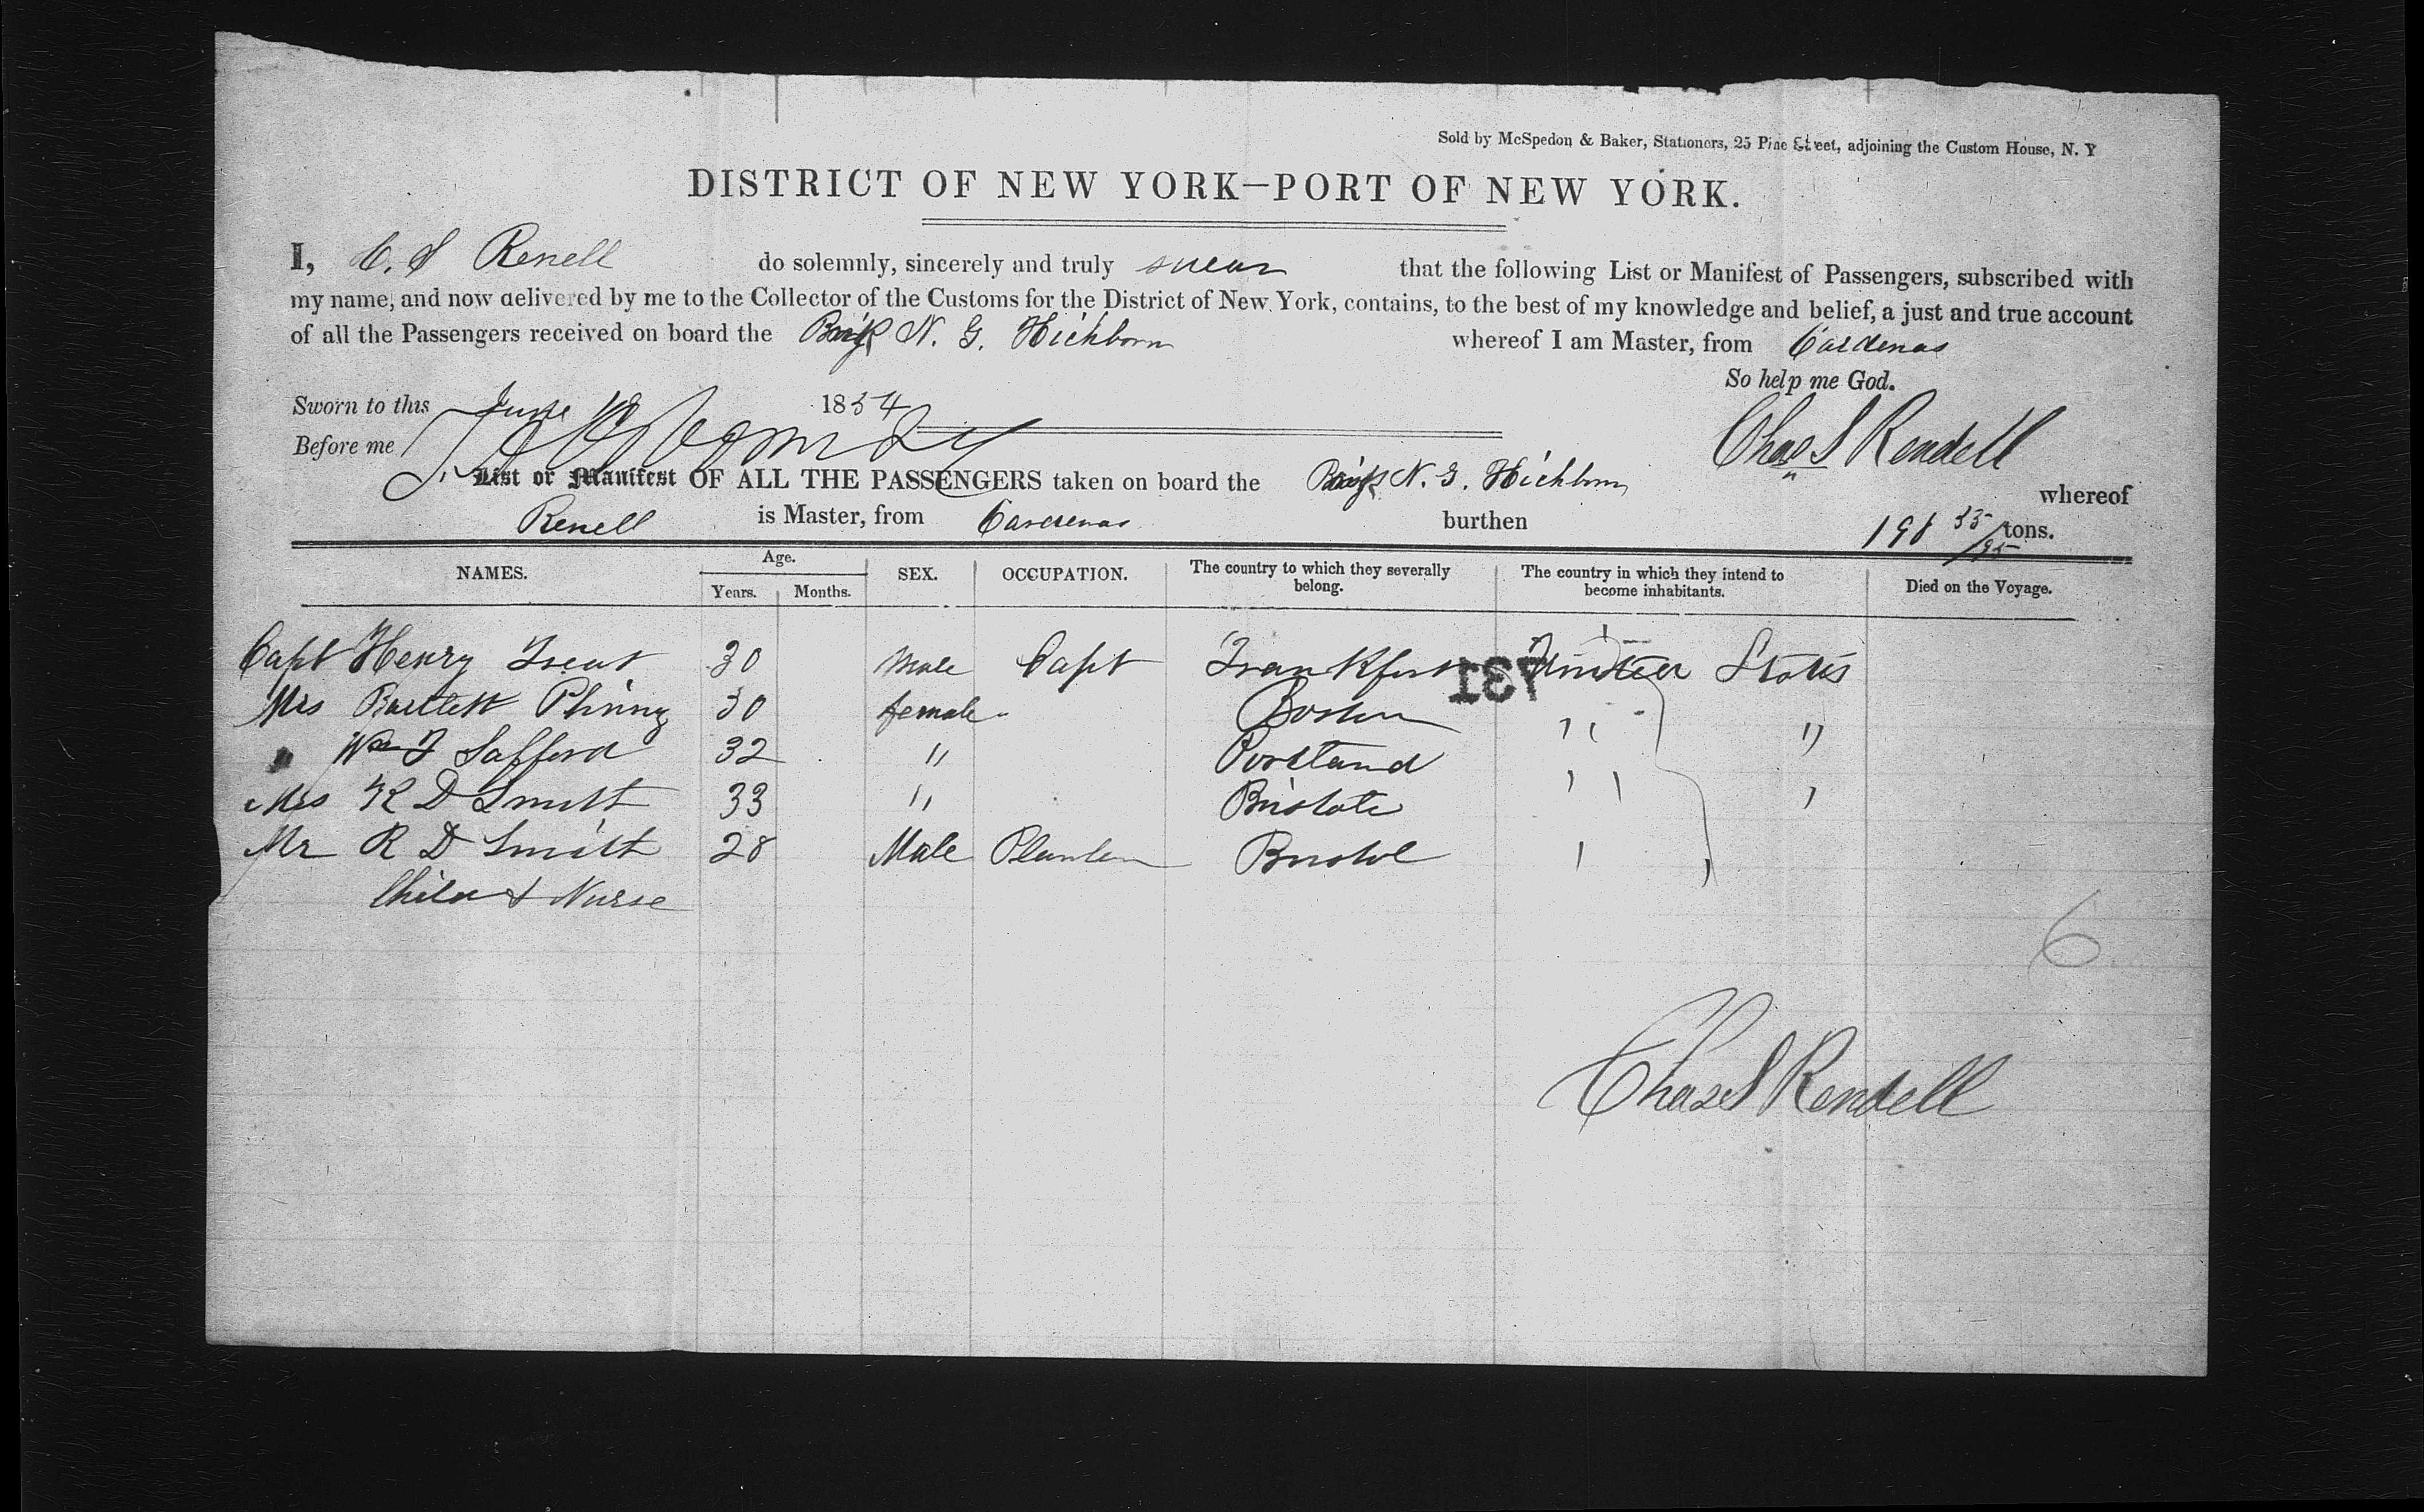 Sold by McSpedon & Baker, Stationers, 25 Pine Street, adjoining the Custom House, N. Y
DISTRICT OF NEW YORK—PORT OF NEW YORK.
I, C. S Renell do solemnly, sincerely and truly swear that the following List or Manifest of Passengers, subscribed with
my name, and now delivered by me to the Collector of the Customs for the District of New York, contains, to the best of my knowledge and belief, a just and true account
of all the Passengers received on board the Brig N. G. Hichborn whereof I am Master, from Cardenas
So help me God.
Sworn to this June 1854
Before me
Chas S Rendell
List or Manifest OF ALL THE PASSENGERS taken on board the Brig N. G. Hichborn whereof
Renell is Master, from Cardenas burthen 198 35/95 tons.
NAMES. Age. Years. Months. SEX. OCCUPATION. The country to which they severally belong. The country in which they intend to become inhabitants. Died on the Voyage.
Capt Henry Treat 30 Male Capt Frankfort United States
137
Mrs Bartlett Phinny 30 female Boston " "
" Wm F Safford 32 " Portland " "
Mrs R D Smith 33 " Bristol
Mr R D Smith 28 Male Planter Bristol "
Child & Nurse
6
Chas S Rendell